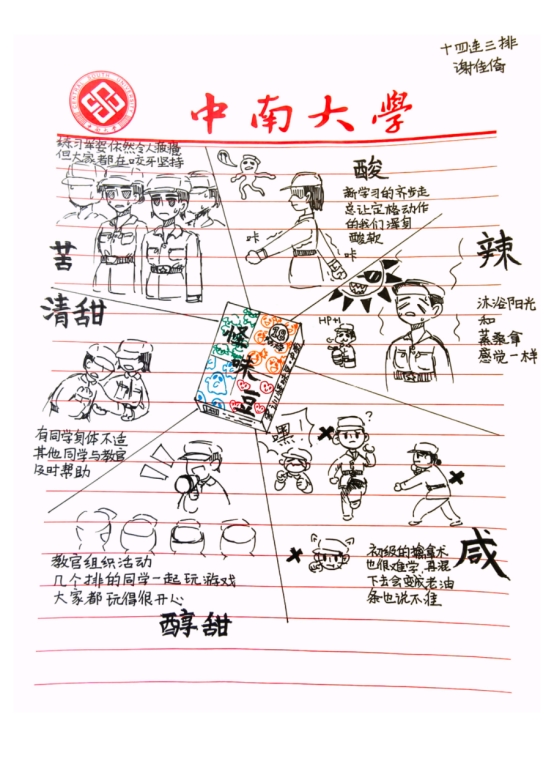 十四连三排
谢佳倚
CENTRAL SOUTH UNIVERSITY
中南大學
练习军姿依然令人疲惫
但大家都在咬牙坚持
苦
酸
新学习的齐步走
总让定格动作
的我们浑身
酸软
咔
咔
辣
沐浴阳光
和
蒸桑拿
感觉一样
HP+1
清甜
有同学身体不适
其他同学与教官
及时帮助
怪
味
豆
嘿!
?
咸
初级的擒拿术
也很难学,再混
下去会变成老油
条也说不准
教官组织活动
几个排的同学一起玩游戏
大家都玩得很开心
醇甜